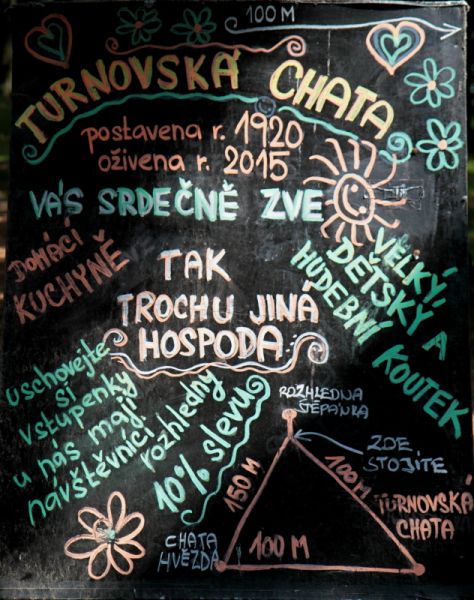 100 M
TURNOVSKÁ CHATA
postavena r. 1920
oživena r. 2015
VÁS SRDEČNĚ ZVE
DOMÁCÍ
KUCHYNĚ
TAK
TROCHU JINÁ
HOSPODA
VELKÝ,
DĚTSKÝ A
HUDEBNÍ KOUTEK
uschovejte
si
vstupenky
u nás mají
návštěvníci
rozhledny
10% slevu
ROZHLEDNA
ŠTĚPÁNKA
ZDE
STOJÍTE
150 M
100 M
TURNOVSKÁ
CHATA
CHATA
HVĚZDA
100 M